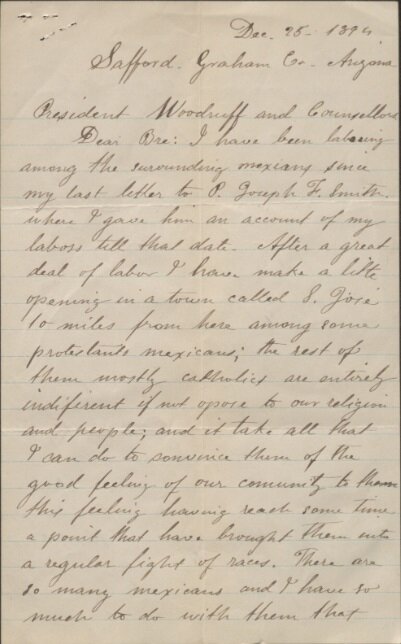 Dec. 25. 1894
Safford. Graham Co. Arizona
President Woodruff and Counsellors
Dear Bre: I have been laboring
among the surounding mexians since
my last letter to P. Joseph F. Smith.
where I gave him an account of my
labors till that date. After a great
deal of labor I have make a little
opening in a town called S. José
10 miles from here among some
protestants mexicans; the rest of
them mostly catholics are entirely
indiferent if not opose to our religion
and people; and it take all that
I can do to convince them of the
good feeling of our comunity to them
this feeling having reach some time
a point that have brought them into
a regular fight of races. There are
so many mexicans and I have so
much to do with them that